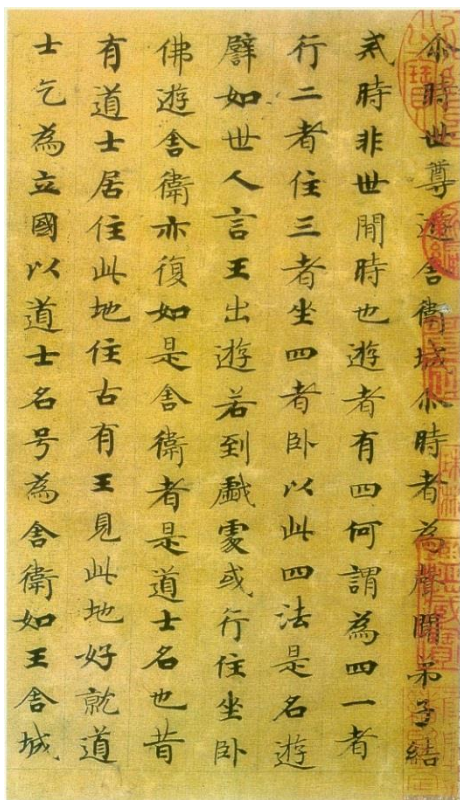 尒時世尊遊舍衛城尒時者為聲聞弟子結
戒時非世間時也遊者有四何謂為四一者
行二者住三者坐四者卧以此四法是名遊
譬如世人言王出遊若到戲處或行住坐卧
佛遊舍衛亦復如是舍衛者是道士名也昔
有道士居住此地住古有王見此地好就道
士乞為立國以道士名号為舍衛如王舍城